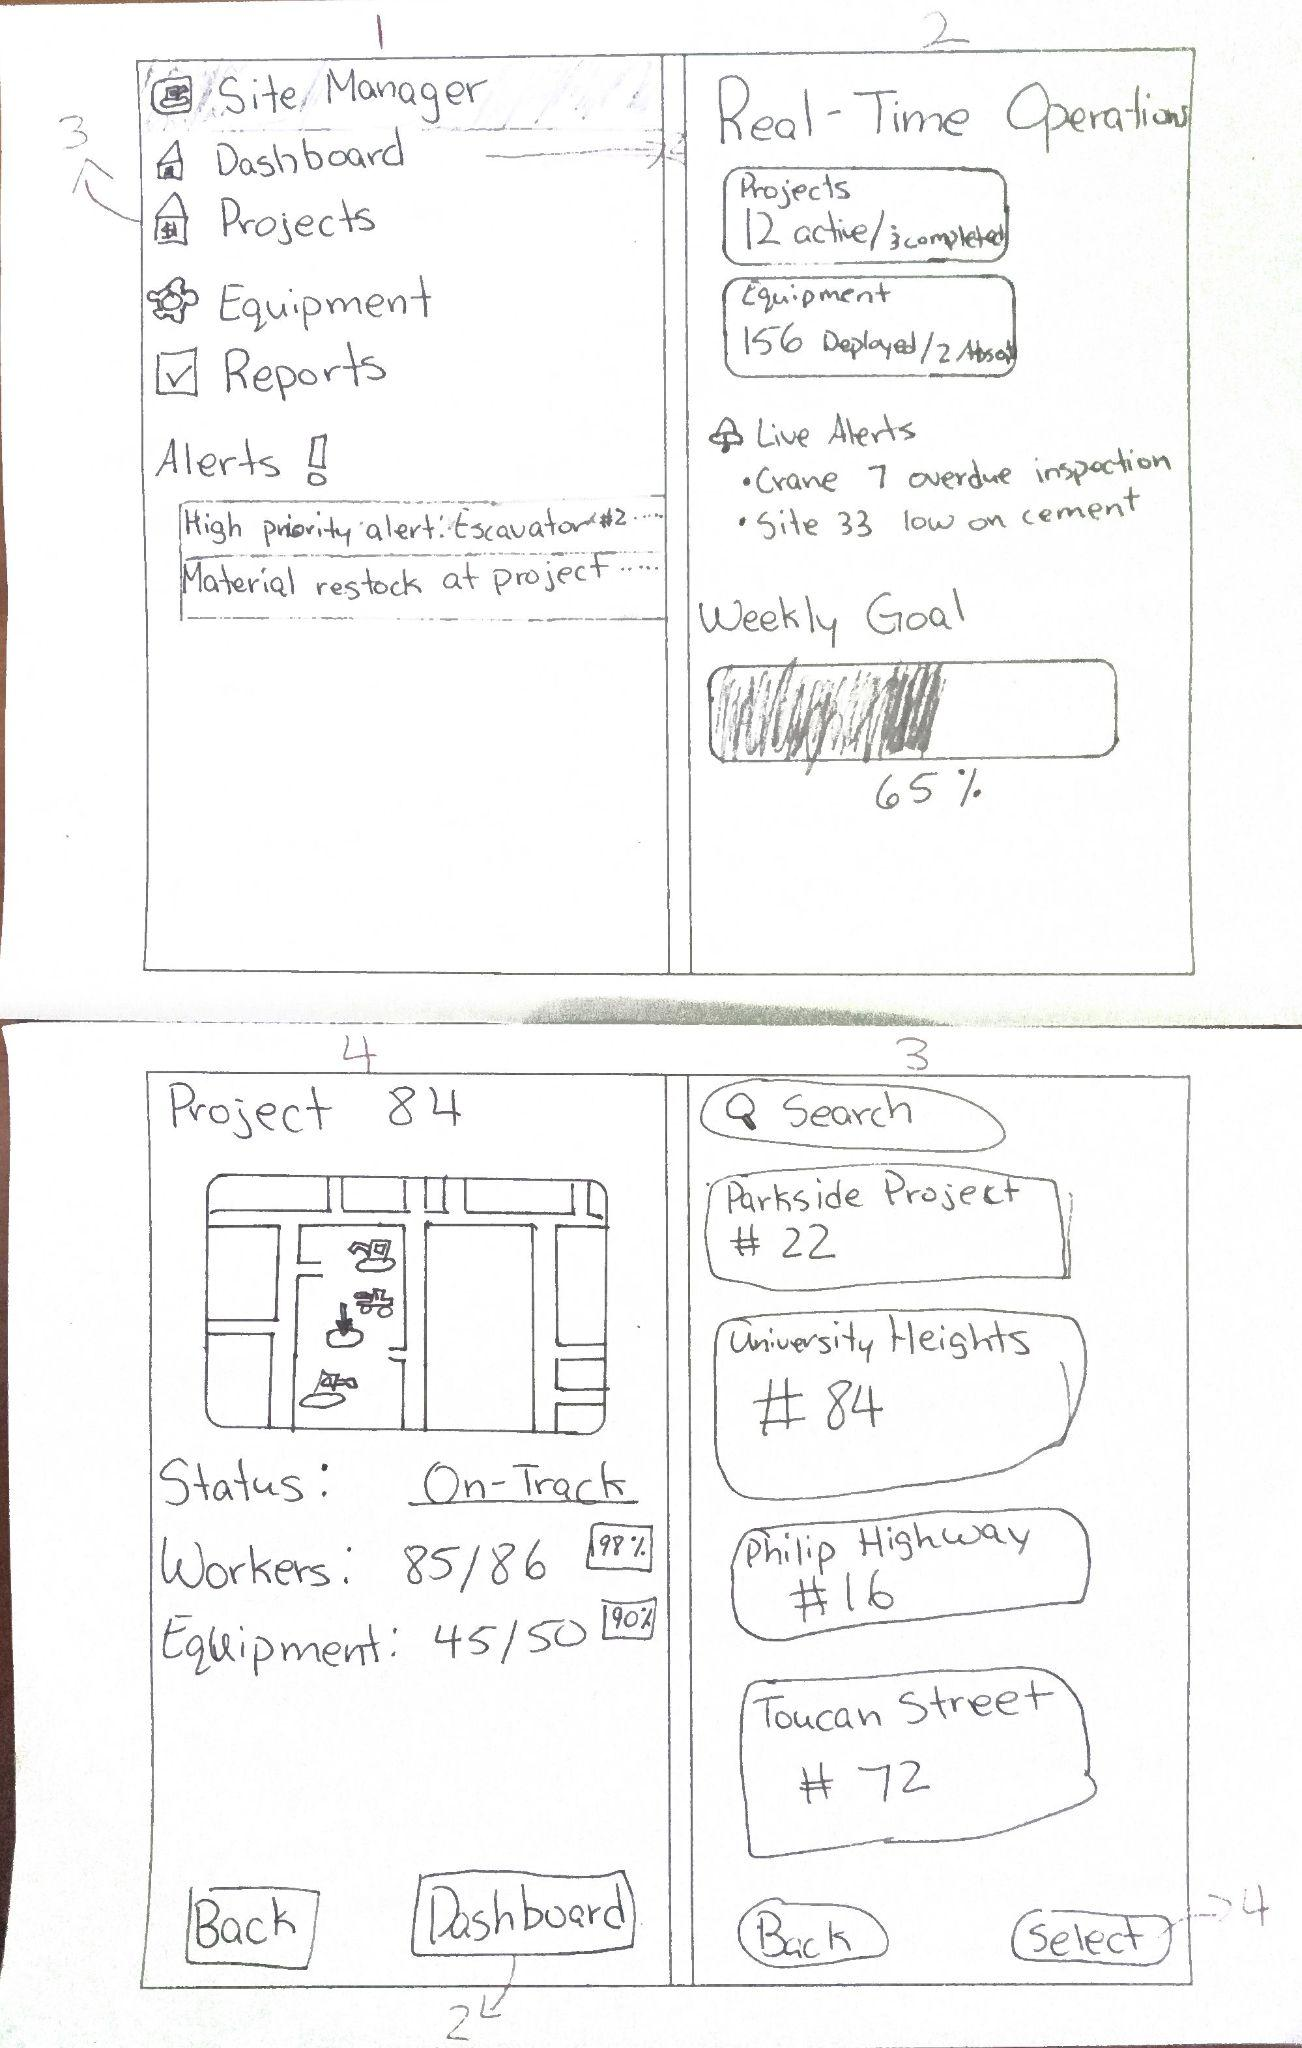 1
Site Manager
3
Dashboard
2
Projects
Equipment
Reports
Alerts !
High priority alert: Escavator #2 ....
Material restock at project .....
2
Real-Time Operations
Projects
12 active/3 completed
Equipment
156 Deployed/2
Live Alerts
• Crane 7 overdue inspection
• Site 33 low on cement
Weekly Goal
65%
4
Project 84
Status: On-Track
Workers: 85/86 98%
Equipment: 45/50 90%
Back Dashboard
2
3
Search
Parkside Project
# 22
University Heights
# 84
Philip Highway
#16
Toucan Street
# 72
Back Select 4